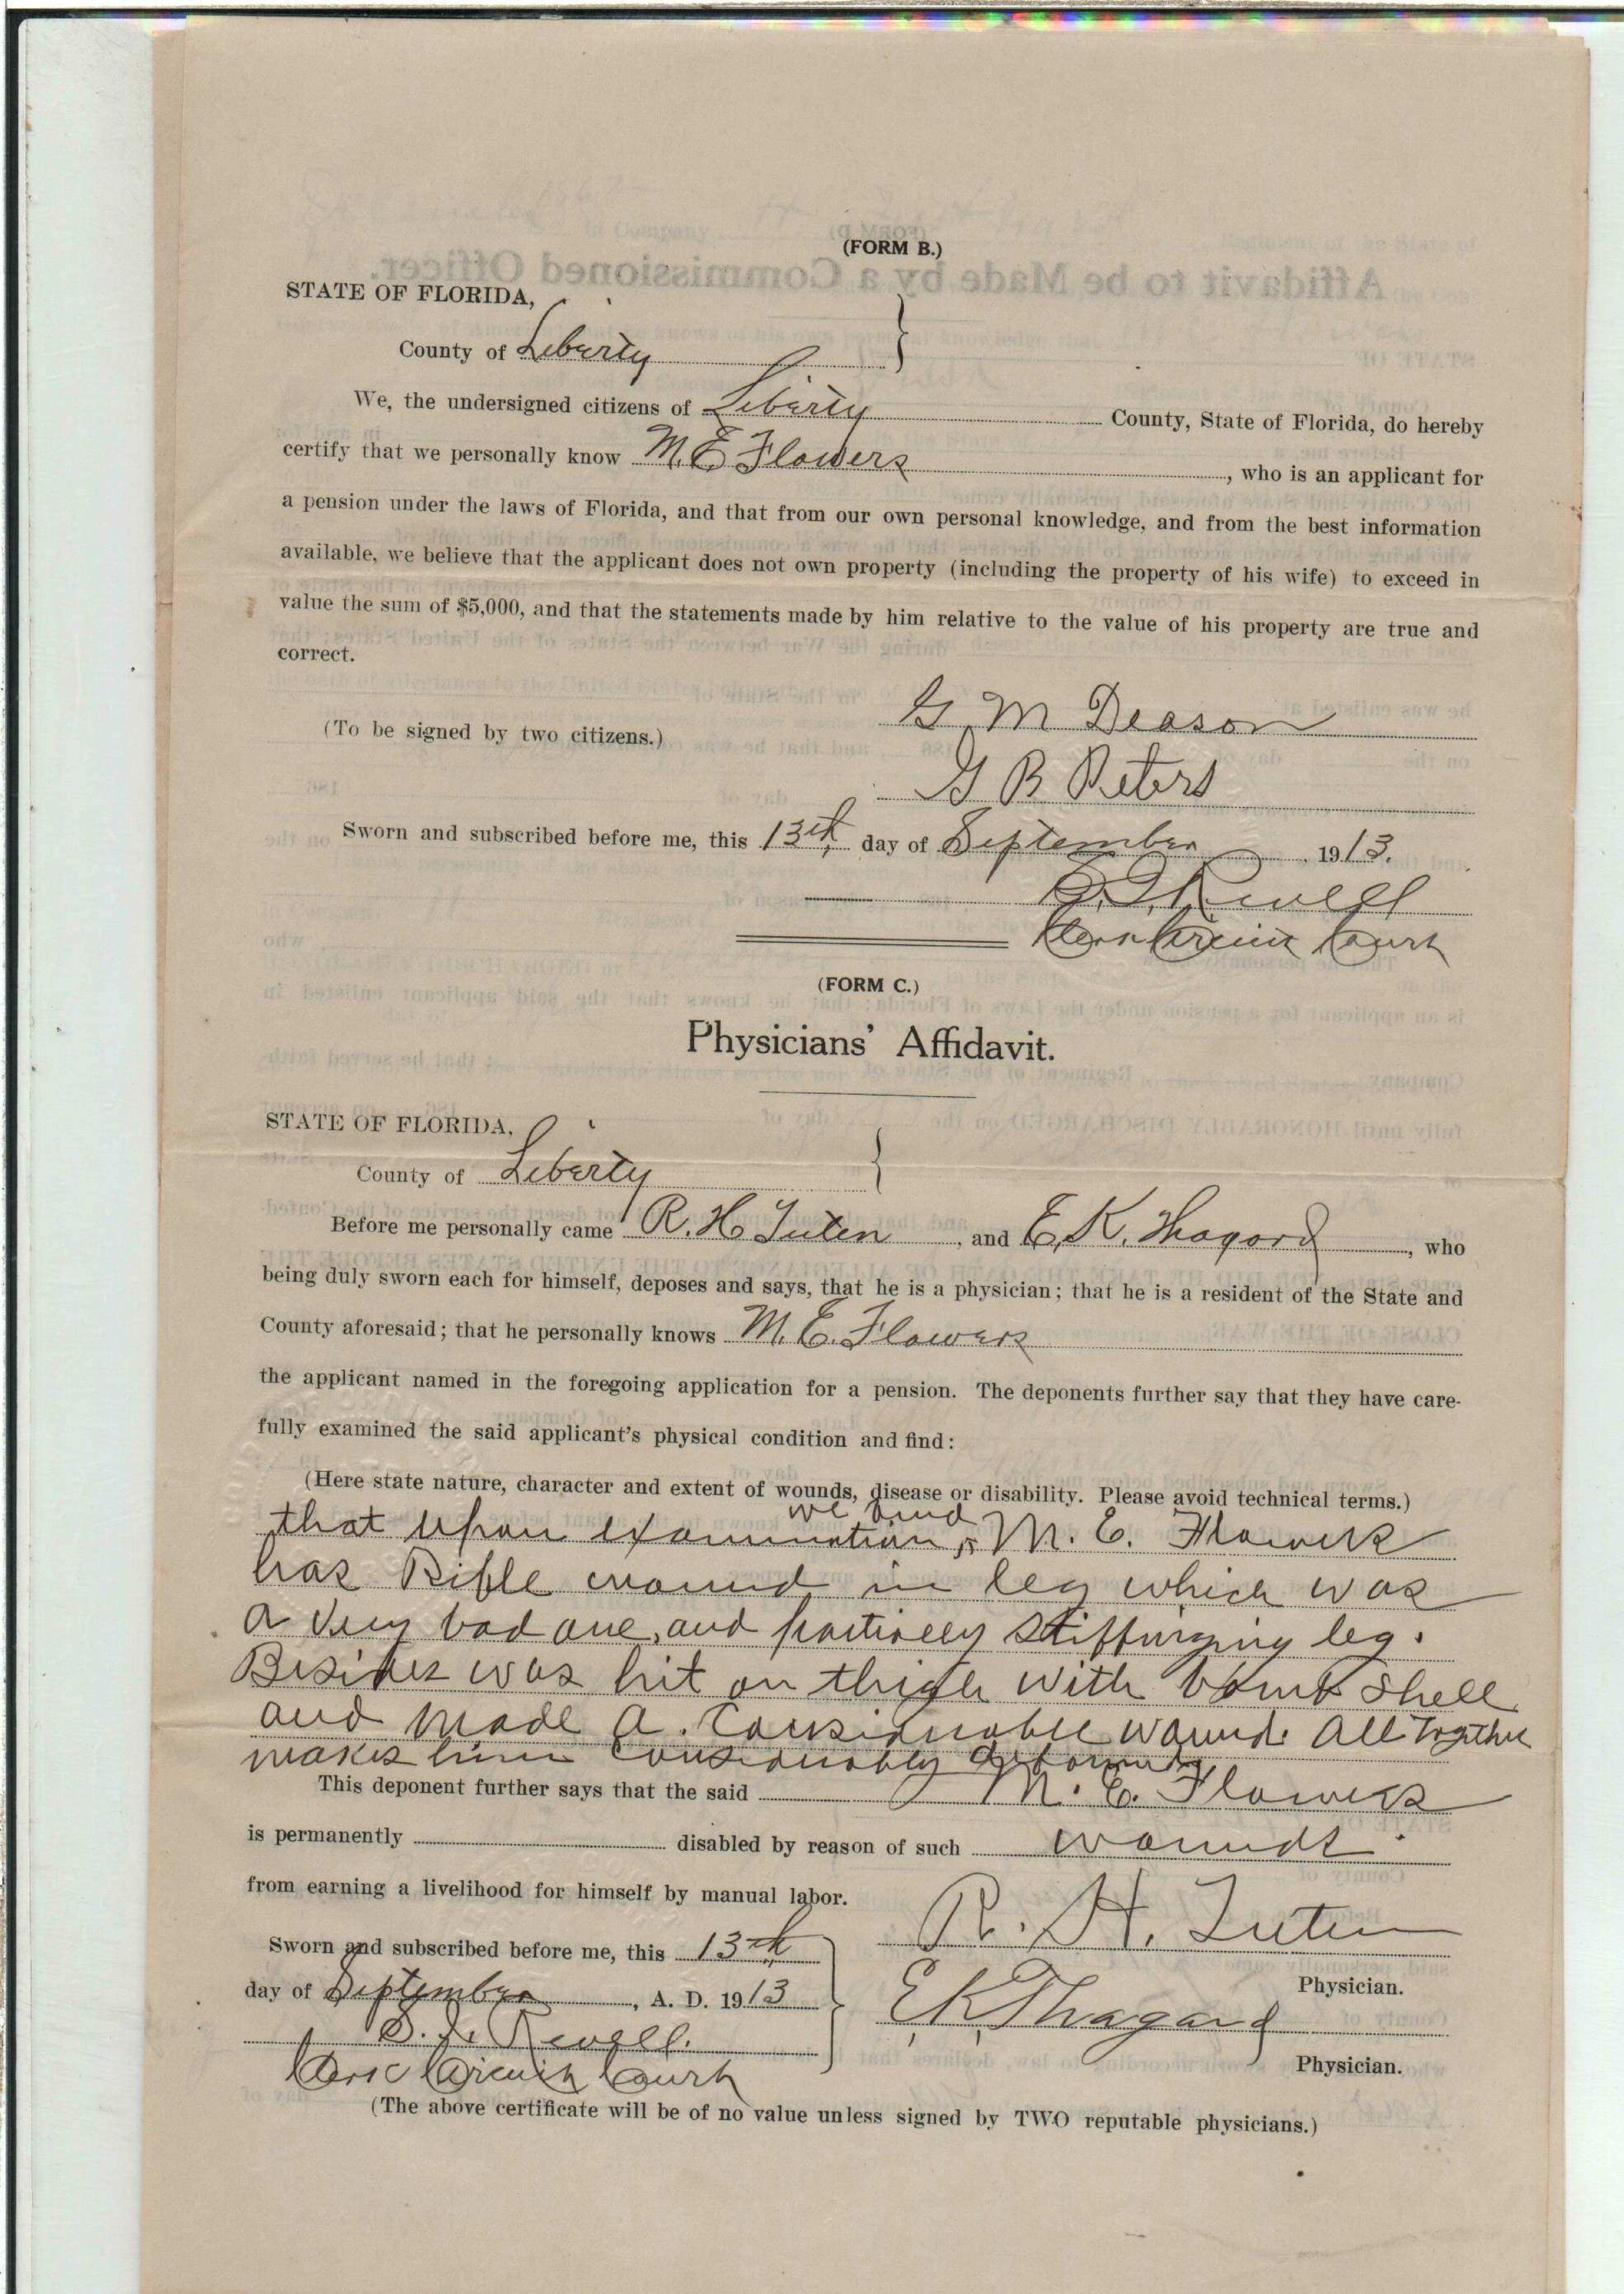 (FORM B.)
STATE OF FLORIDA,
County of Liberty
We, the undersigned citizens of Liberty County, State of Florida, do hereby
certify that we personally know M. E. Flowers, who is an applicant for
a pension under the laws of Florida, and that from our own personal knowledge, and from the best information
available, we believe that the applicant does not own property (including the property of his wife) to exceed in
value the sum of $5,000, and that the statements made by him relative to the value of his property are true and
correct.
G. M Deason
(To be signed by two citizens.)
G B Peters
Sworn and subscribed before me, this 13th, day of September, 1913.
Revell
Circuit Court
(FORM C.)
Physicians' Affidavit.
STATE OF FLORIDA,
County of Liberty
Before me personally came R. H. Tuten, and E. K. Thagard, who
being duly sworn each for himself, deposes and says, that he is a physician; that he is a resident of the State and
County aforesaid; that he personally knows M. E. Flowers
the applicant named in the foregoing application for a pension. The deponents further say that they have care-
fully examined the said applicant's physical condition and find:
(Here state nature, character and extent of wounds, disease or disability. Please avoid technical terms.)
we find
that upon examination, M. E. Flowers
has Rifle wound in leg which was
a very bad one, and partially leg.
Besides was hit on thigh with bomb shell
and made a considerable wound. All together
makes him considerably
This deponent further says that the said M. E. Flowers
is permanently disabled by reason of such wounds.
from earning a livelihood for himself by manual labor.
R. H. Tuten
Sworn and subscribed before me, this 13th
Physician.
day of September, A. D. 1913
E K Thagard
Revell.
Physician.
Clerk Circuit Court
(The above certificate will be of no value unless signed by TWO reputable physicians.)